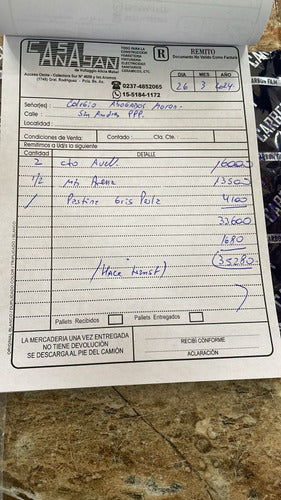 CASA ANAYAN
de Voltaggio Altura Mabel
Acceso Oeste - Colectora Sur Nº 4609 y los Aromos
(1748) Gral. Rodriguez - Pcia. Bs. As.
TODO PARA LA
CONSTRUCCION
FERRETERIA
PINTURERIA
ELECTRICIDAD
SANITARIOS
CERAMICOS, ETC.
0237-4852065
15-5184-1172
R
REMITO
Documento No Valido Como Factura
DIA MES AÑO
26 3 2024
Señor(es): Colegio Abogados Moron.
Calle: San Andres PPP.
Localidad:
Condiciones de Venta: Contado: Cta. Cte.:
Remitimos a Ud/s lo siguiente
Cantidad DETALLE
2 cto Avell. 16000
1/2 mts Arena 13500
1 Pastina Gris Perla 4100
33600
1680
35280
(Hace transf)
Pallets Recibidos Pallets Entregados
LA MERCADERIA UNA VEZ ENTREGADA
NO TIENE DEVOLUCIÓN
SE DESCARGA AL PIE DEL CAMIÓN
RECIBI CONFORME
ACLARACIÓN
ORIGINAL BLANCO / DUPLICADO COLOR / TRIPLICADO
CARBON FILM